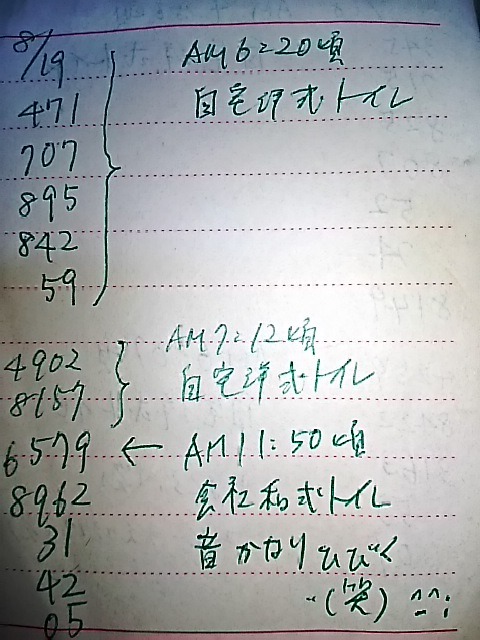 8/19
AM6:20頃
471
自宅洋式トイレ
707
895
842
59
AM7:12頃
4902
自宅洋式トイレ
8157
6579 ← AM11:50頃
8962 会社和式トイレ
31 音かなりひびく
42 (笑) ^^;
05